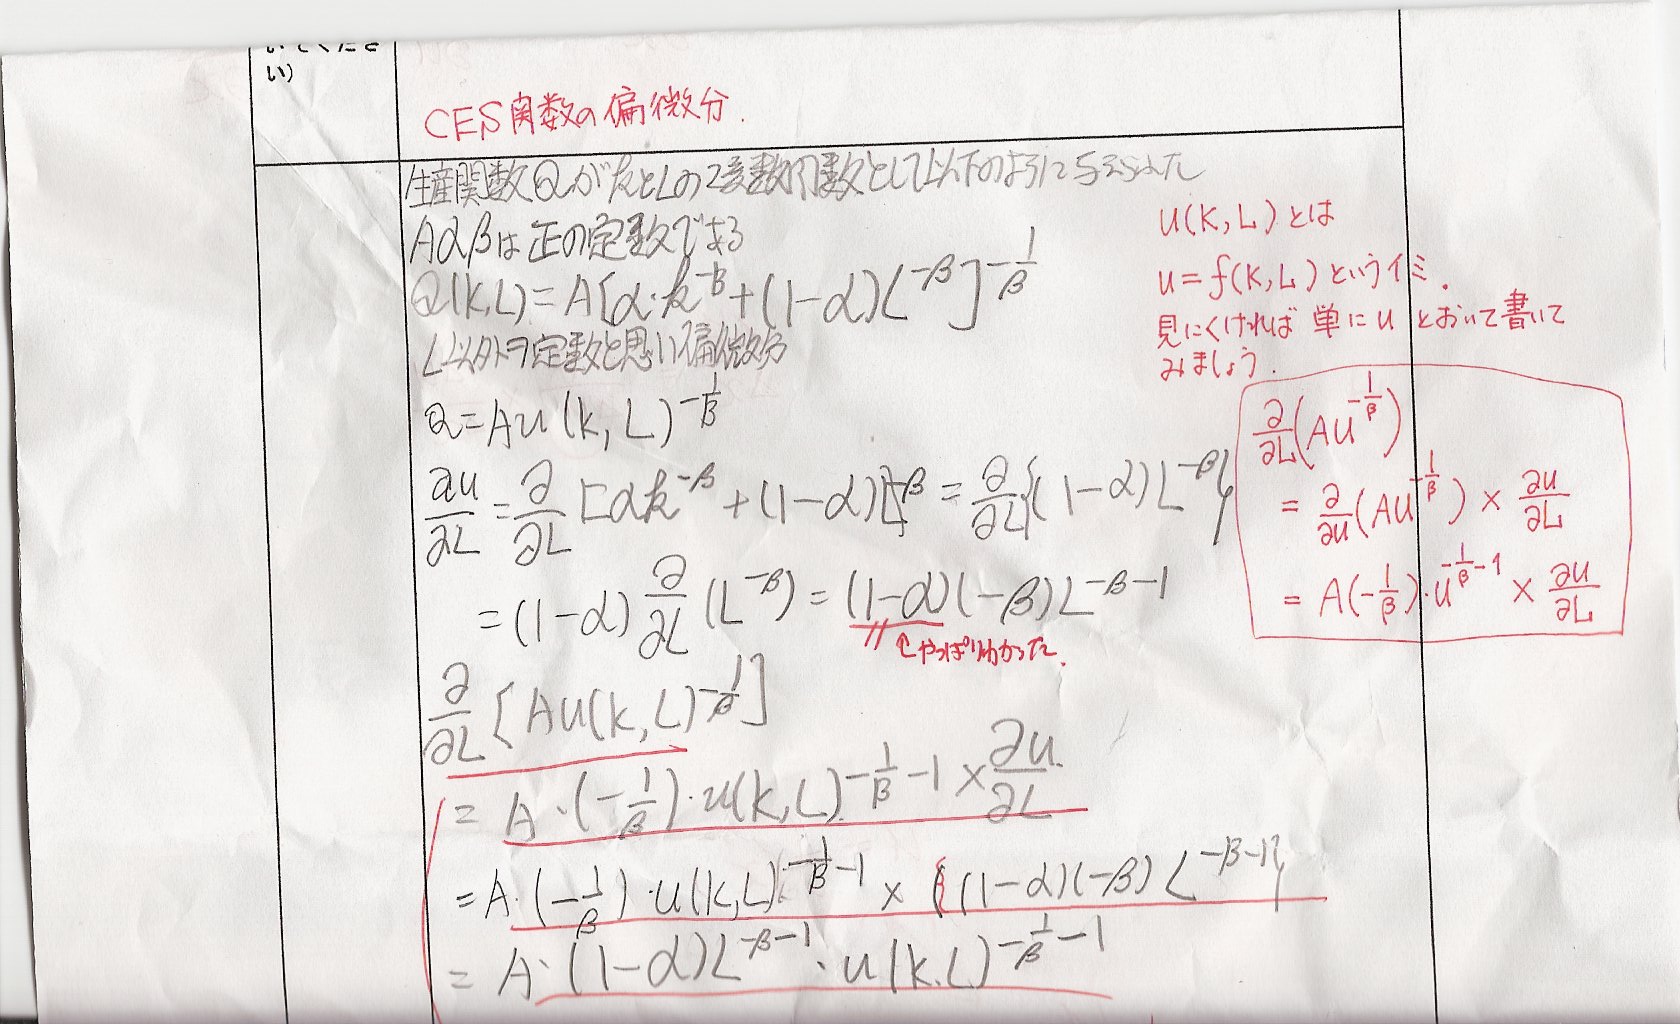 い)
CES関数の偏微分.
生産関数QがkとLの2変数関数として以下のように与えられた
Aαβは正の定数である
Q(K,L)=A[α·k^{-β}+(1-α)L^{-β}]^{-\frac{1}{β}}
L以外ヲ定数と思い偏微分
Q=Au(K,L)^{-\frac{1}{β}}
\frac{∂u}{∂L}=\frac{∂}{∂L}[αk^{-β}+(1-α)L^{-β}]=\frac{∂}{∂L}{(1-α)L^{-β}}
=(1-α)\frac{∂}{∂L}(L^{-β})=(1-α)(-β)L^{-β-1}
\frac{∂}{∂L}[Au(K,L)^{-\frac{1}{β}}]
=A·(-\frac{1}{β})·u(K,L)^{-\frac{1}{β}-1}×\frac{∂u}{∂L}
=A·(-\frac{1}{β})·u(K,L)^{-\frac{1}{β}-1}×{(1-α)(-β)L^{-β-1}}
=A·(1-α)L^{-β-1}·u(K,L)^{-\frac{1}{β}-1}
u(K,L)とは
u=f(K,L)というイミ.
見にくければ単にuとおいて書いて
みましょう.
\frac{∂}{∂L}(Au^{-\frac{1}{β}})
=\frac{∂}{∂u}(Au^{-\frac{1}{β}})×\frac{∂u}{∂L}
=A(-\frac{1}{β})·u^{-\frac{1}{β}-1}×\frac{∂u}{∂L}